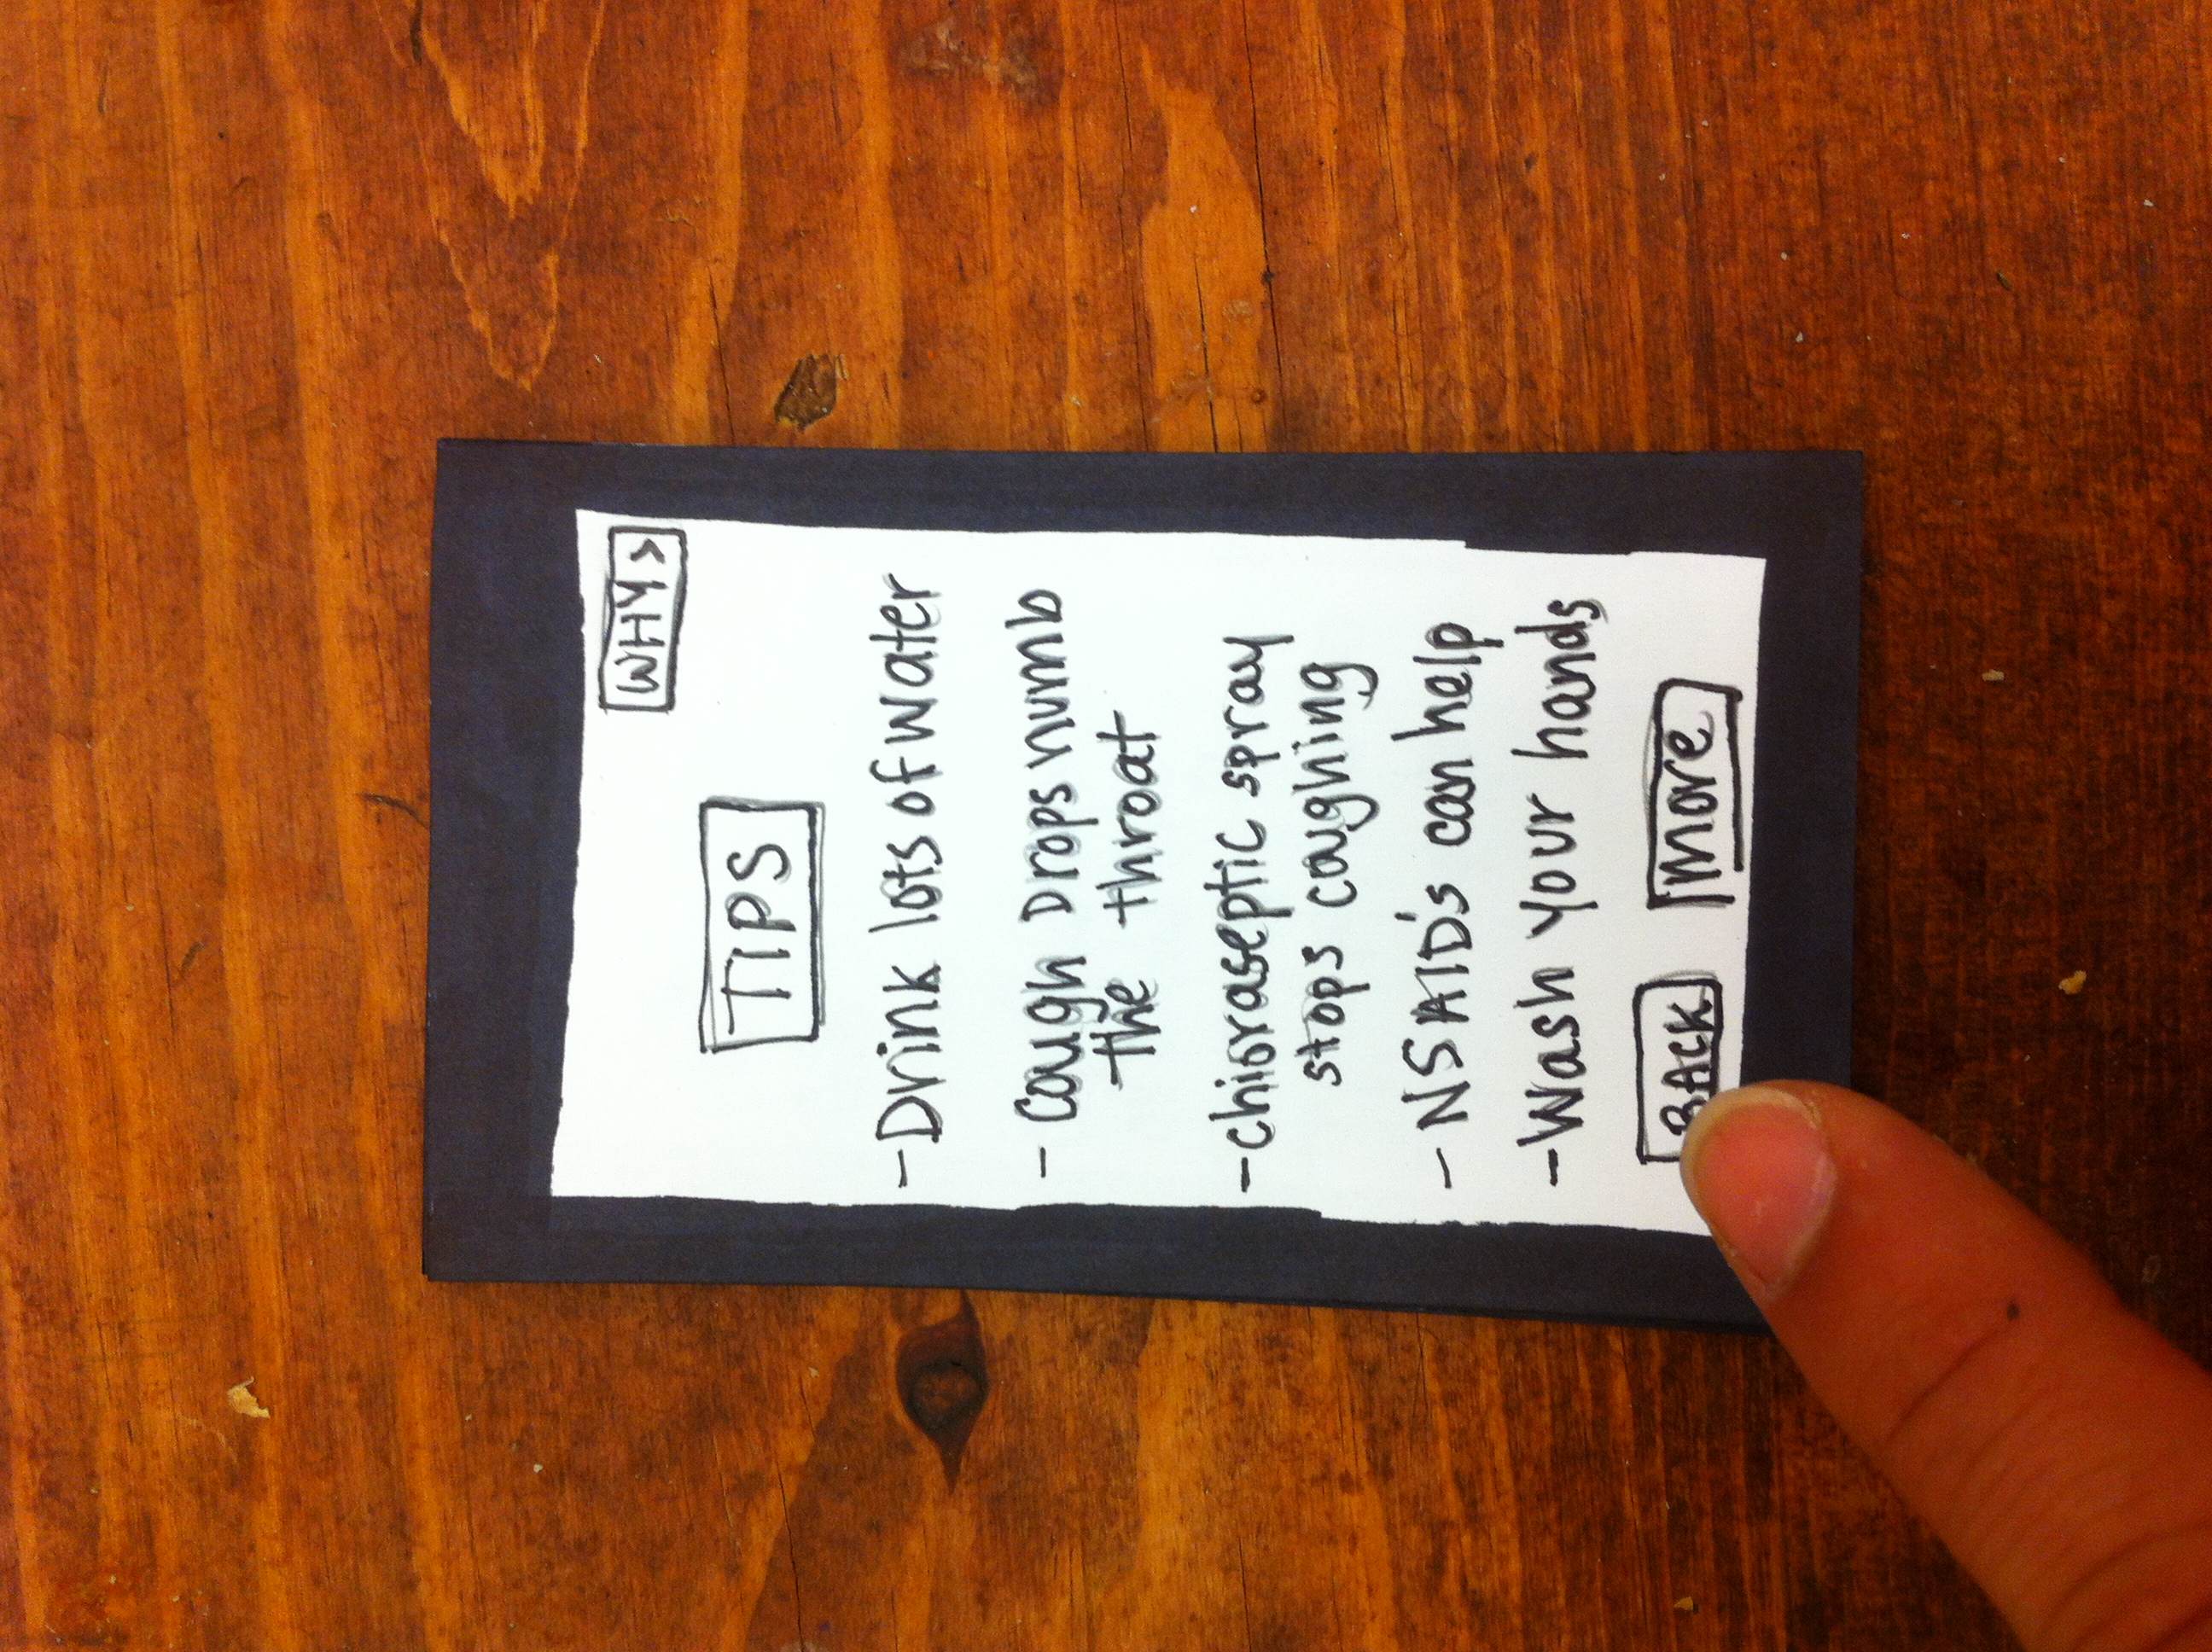 WHY >
TIPS
- Drink lots of water
- Cough Drops numb
the throat
- chloraseptic spray
stops coughing
- NSAID's can help
- Wash your hands
BACK more